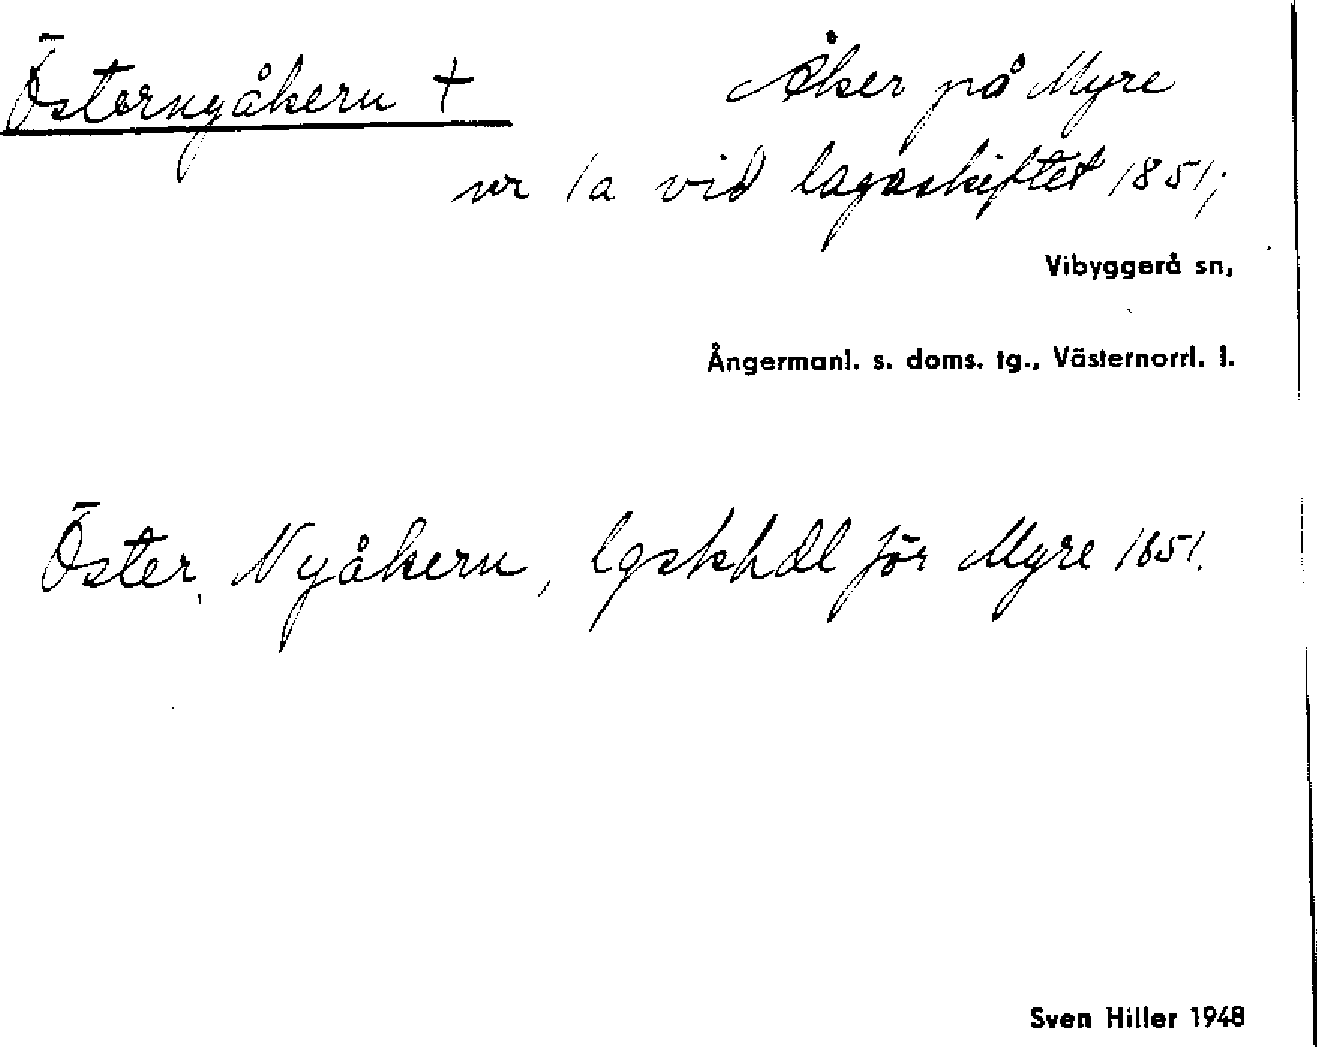 Östernyåkern † Åker på Myre
nr 1a vid lagaskiftet 1851;
Vibyggerå sn,
Ångermanl. s. doms. tg., Västernorrl. l.
Öster, Nyåkern, lgskhdl för Myre 1851.
Sven Hiller 1948